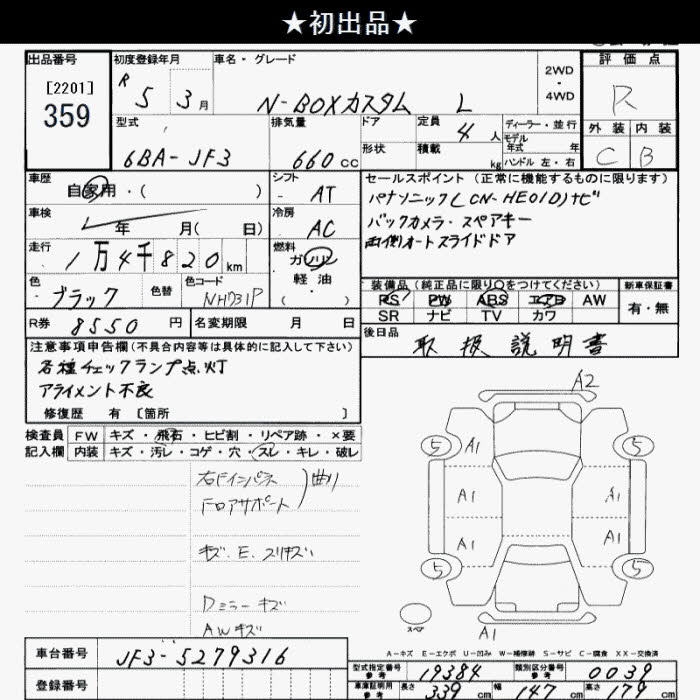 ★初出品★
出品番号
[2201]
359
初度登録年月
R 5 3 月
車名・グレード
N-BOXカスタム L
2WD
・
4WD
評価点
R
外装 内装
C B
型式
6BA-JF3
排気量
660 cc
ドア
形状
定員
4 人
積載
kg
ディーラー・並行
モデル
年式 年
ハンドル 左・右
車歴
自家用・( )
シフト
AT
車検
年 月( 日)
冷房
AC
走行
1万4千820 km
燃料
ガソリン
・
軽油
( )
色
ブラック
色替
色コード
NH731P
R券 8550 円
名変期限 月 日
セールスポイント (正常に機能するものに限ります)
パナソニック(CN-HE01D)ナビ
バックカメラ・スペアキー
両側オートスライドドア
装備品(純正品に限り○をつけてください)
PS PW ABS エアB AW
SR ナビ TV カワ
新車保証書
有・無
後日品
取扱説明書
注意事項申告欄(不具合内容等は具体的に記入して下さい)
各種チェックランプ点灯
アライメント不良
修復歴 有 [箇所 ]
検査員
記入欄
FW キズ・飛石・ヒビ割・リペア跡・×要
内装 キズ・汚レ・コゲ・穴・スレ・キレ・破レ
右Fインパネ
フロアサポート
曲り
キズ、E、スリキズ
Dミラーキズ
AWキズ
A2
5 A1 A1 5
A1 A1
A1 A1
5 5
スペア
A1
A-キズ E-エクボ U-凹み W-補修跡 S-サビ C-腐食 XX-交換済
車台番号 JF3-5279316
登録番号
型式指定番号
参考
19384
類別区分番号
参考
0039
車庫証明用
参考
長さ 339 cm 幅 147 cm 高さ 179 cm